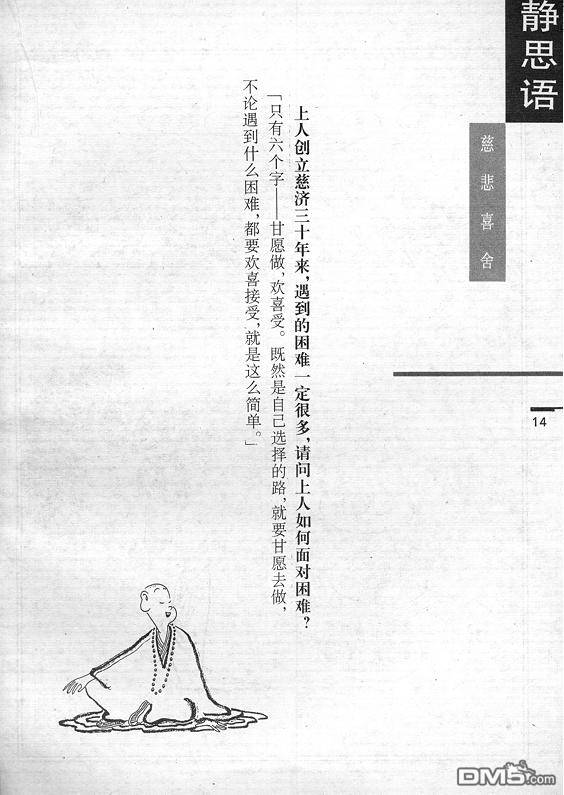 静思语
慈悲喜舍
14
上人创立慈济三十年来，遇到的困难一定很多，请问上人如何面对困难？
「只有六个字——甘愿做，欢喜受。既然是自己选择的路，就要甘愿去做，
不论遇到什么困难，都要欢喜接受，就是这么简单。」
DM5.com